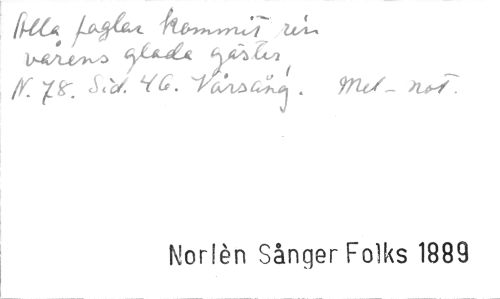 Alla foglar kommit ren
vårens glada gäster,
N. 78. Sid. 46. Vårsång. Mel-not.
Norlèn Sånger Folks 1889